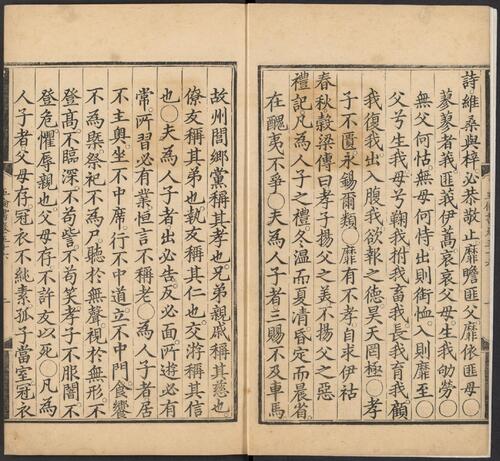 詩維桑與梓必恭敬止靡瞻匪父靡依匪母〇
蓼蓼者莪匪莪伊蒿哀哀父母生我劬勞〇
無父何怙無母何恃出則銜恤入則靡至〇
父兮生我母兮鞠我拊我畜我長我育我顧
我復我出入腹我欲報之德昊天罔極〇孝
子不匱永錫爾類〇靡有不孝自求伊祜
春秋穀梁傳曰孝子揚父之美不揚父之惡
禮記凡為人子之禮冬溫而夏凊昏定而晨省
在醜夷不爭〇夫為人子者三賜不及車馬
故州閭鄉黨稱其孝也兄弟親戚稱其慈也
僚友稱其弟也執友稱其仁也交游稱其信
也〇夫為人子者出必告反必面所遊必有
常所習必有業恒言不稱老〇為人子者居
不主奧坐不中席行不中道立不中門食饗
不為槩祭祀不為尸聽於無聲視於無形不
登高不臨深不苟訾不苟笑孝子不服闇不
登危懼辱親也父母存不許友以死〇凡為
人子者父母存冠衣不純素孤子當室冠衣